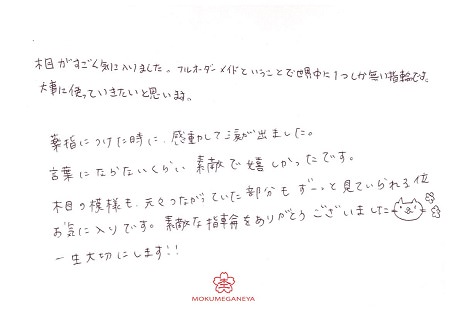 木目がすごく気に入りました。フルオーダーメイドということで世界中に1つしか無い指輪です。
大事に使っていきたいと思います。
薬指につけた時に、感動して涙が出ました。
言葉にならないくらい素敵で嬉しかったです。
木目の模様も、元々つながっていた部分もずーっと見ていられる位
お気に入りです。素敵な指輪をありがとうございました
一生大切にします!!
MOKUMEGANEYA